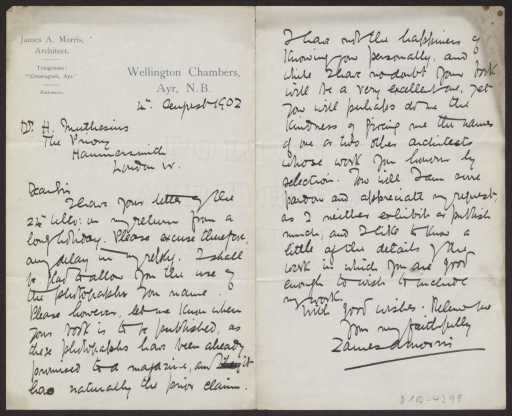 James A. Morris,
Architect.
Telegrams:
Wellington Chambers,
Ayr, N.B.
4th August 1902
Dr. H. Muthesius
The Priory
Hammersmith
London W.
Dear Sir
I have your letter of the
22nd ulto: on my return from a
long holiday. Please excuse therefore,
any delay in my reply. I shall
be glad to allow you the use of
the photographs you name.
Please however, let me know when
your book is to be published, as
these photographs have been already
promised to a magazine, and it
has naturally the prior claim.
I have not the happiness of
knowing you personally, and
while I have no doubt your book
will be a very excellent one, yet
you will perhaps do me the
kindness of giving me the names
of one or two other architects
whose work you honour by
selection. You will I am sure
pardon and appreciate my request,
as I neither exhibit or publish
much, and I like to know a
little of the details of the
work in which you are good
enough to wish to include
my work.
With good wishes. Believe me
Yours very faithfully
James A Morris